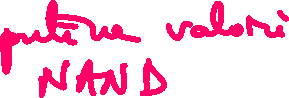 putine valori
NAND